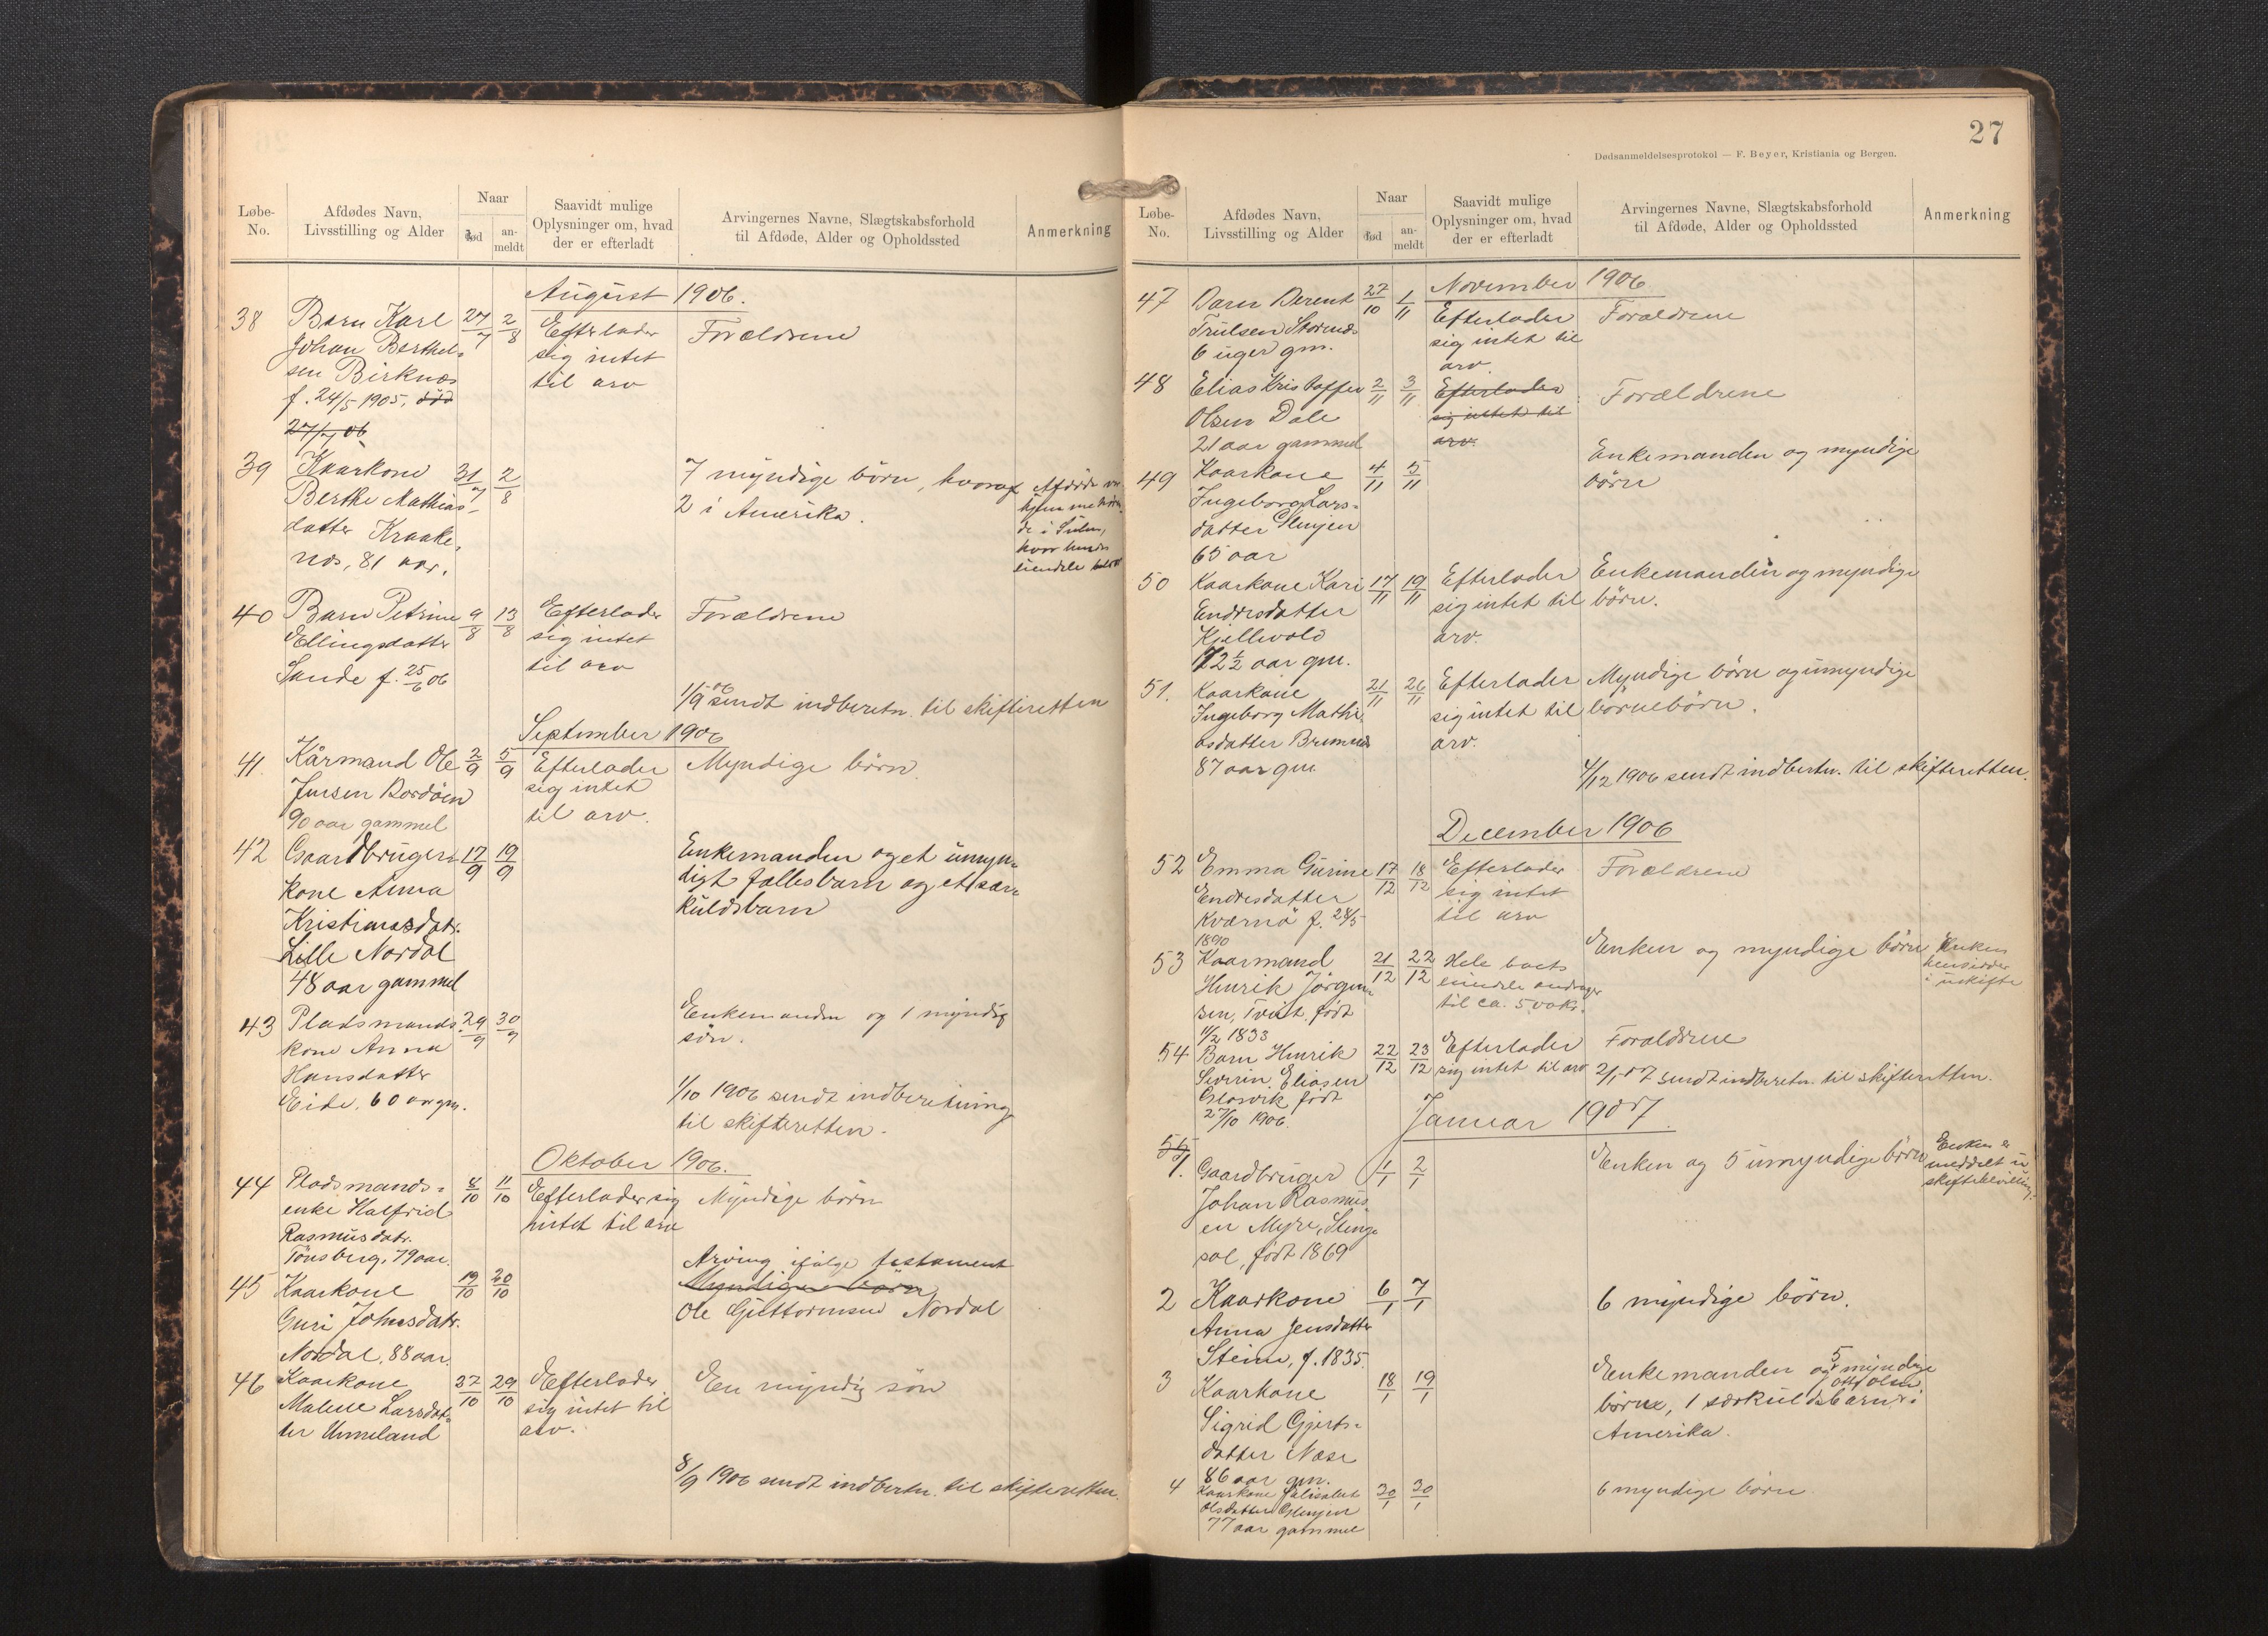 Løbe-No.
Afdødes Navn, Livsstilling og Alder
Naar
død
an-meldt
Saavidt mulige Oplysninger om, hvad der er efterladt
Arvingernes Navne, Slægtskabsforhold til Afdøde, Alder og Opholdssted
Anmerkning
August 1906.
38 Barn Karl 27/7 2/8 Efterlader Forældrene
Johan Berthel- sig intet
sen Birknæs til arv
f. 24/5 1905, død
27/7 06
39 Kaarkone 31/7 2/8 7 myndige børn, hvoraf Afdøde var
Berthe Mathias- 2 i Amerika. hjemmehøren-
datter Kraake- de i Sulen,
næs, 81 aar. hvor hendes
eiendele
40 Barn Petrine 9/8 13/8 Efterlader Forældrene
Ellingsdatter sig intet
Sande f. 25/6 06 til arv
1/9 06 sendt indberetn. til skifteretten
September 1906
41. Kårmand Ole 2/9 5/9 Efterlader Myndige børn.
Jensen Bordöen sig intet
90 aar gammel til arv.
42 Gaardbruger- 17/9 19/9 Enkemanden og et umyn-
kone Anna digt fællesbarn og et sær-
Kristiansdatr. kuldsbarn
Lille Nordal
48 aar gammel
43 Pladsmands- 29/9 30/9 Enkemanden og 1 myndig
kone Anna søn.
Hansdatter
Eide, 60 aar gm.
1/10 1906 sendt indberetning
til skifteretten.
Oktober 1906.
44 Pladsmands- 8/10 11/10 Efterlader sig Myndige børn
enke Halfrid intet til arv
Rasmusdatr.
Tönsberg, 79 aar.
Arving ifølge testament
45 Kaarkone 19/10 20/10 Myndige børn
Guri Johnsdatr. Ole Guttormsen Nordal
Nordal, 88 aar.
46 Kaarkone 27/10 29/10 Efterlader En myndig søn
Malene Larsdat- sig intet til
ter Unneland arv.
8/9 1906 sendt indbertn. til skifteretten.
27
Dødsanmeldelsesprotokol — F. Beyer, Kristiania og Bergen.
Løbe-No.
Afdødes Navn, Livsstilling og Alder
Naar
død
an-meldt
Saavidt mulige Oplysninger om, hvad der er efterladt
Arvingernes Navne, Slægtskabsforhold til Afdøde, Alder og Opholdssted
Anmerkning
November 1906
47 Barn Berent 27/10 1/11 Efterlader Forældrene
Trulsen Storenæs sig intet til
6 uger gm. arv.
48 Elias Kristoffer 2/11 3/11 Efterlader Forældrene
Olsen Dale sig intet til
21 aar gammel arv.
49 Kaarkone 4/11 5/11 Enkemanden og myndige
Ingeborg Lars- børn
datter Glenjen
65 aar
50 Kaarkone Kari 17/11 19/11 Efterlader Enkemanden og myndige
Endresdatter sig intet til børn.
Kjellevold arv.
72 1/2 aar gm.
51. Kaarkone 21/11 26/11 Efterlader Myndige børn og umyndige
Ingeborg Mathi- sig intet til børnebörn.
asdatter Bremnes arv.
87 aar gm
4/12 1906 sendt indbertn. til skifteretten.
December 1906
52 Emma Gurine 17/12 18/12 Efterlader Forældrene
Endresdatter sig intet
Kværnö f. 28/5 til arv
1890
53 Kaarmand 21/12 22/12 Hele boets Enken og myndige børn Enken
Henrik Jörgen- eiendele andrager hensidder
sen, Tvidt, født til ca. 500 kr. i uskifte
11/2 1833
54 Barn Henrik 22/12 23/12 Efterlader Forældrene
Severin Eliasen sig intet til arv 2/1 07 sendt indberetn. til skifteretten.
Glosvik født
27/10 1906.
Januar 1907.
55
1. Gaardbruger 1/1 2/1 Enken og 5 umyndige børn Enken er
Johan Rasmus- meddelt u-
en Myre, Stenge- skiftebevilling.
sol, født 1869
2 Kaarkone 6/1 7/1 6 myndige børn.
Anna Jensdatter
Steine, f. 1835.
3 Kaarkone 18/1 19/1 Enkemanden og 5 myndige
Sigrid Gjerts- børn, 1 særkuldsbarn i
datter Nese Amerika.
86 aar gm.
4 Kaarkone Elisabet 30/1 30/1 6 myndige børn
Olsdatter Glenjen
77 aar gammel